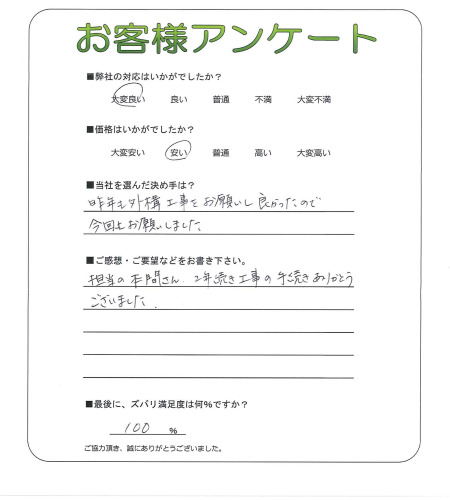 お客様アンケート
■弊社の対応はいかがでしたか？
大変良い 良い 普通 不満 大変不満
■価格はいかがでしたか？
大変安い 安い 普通 高い 大変高い
■当社を選んだ決め手は？
昨年も外構工事をお願いし良かったので
今回もお願いしました
■ご感想・ご要望などをお書き下さい。
担当の本間さん、2年続き工事の手続きありがとう
ございました。
■最後に、ズバリ満足度は何%ですか？
100 %
ご協力頂き、誠にありがとうございました。